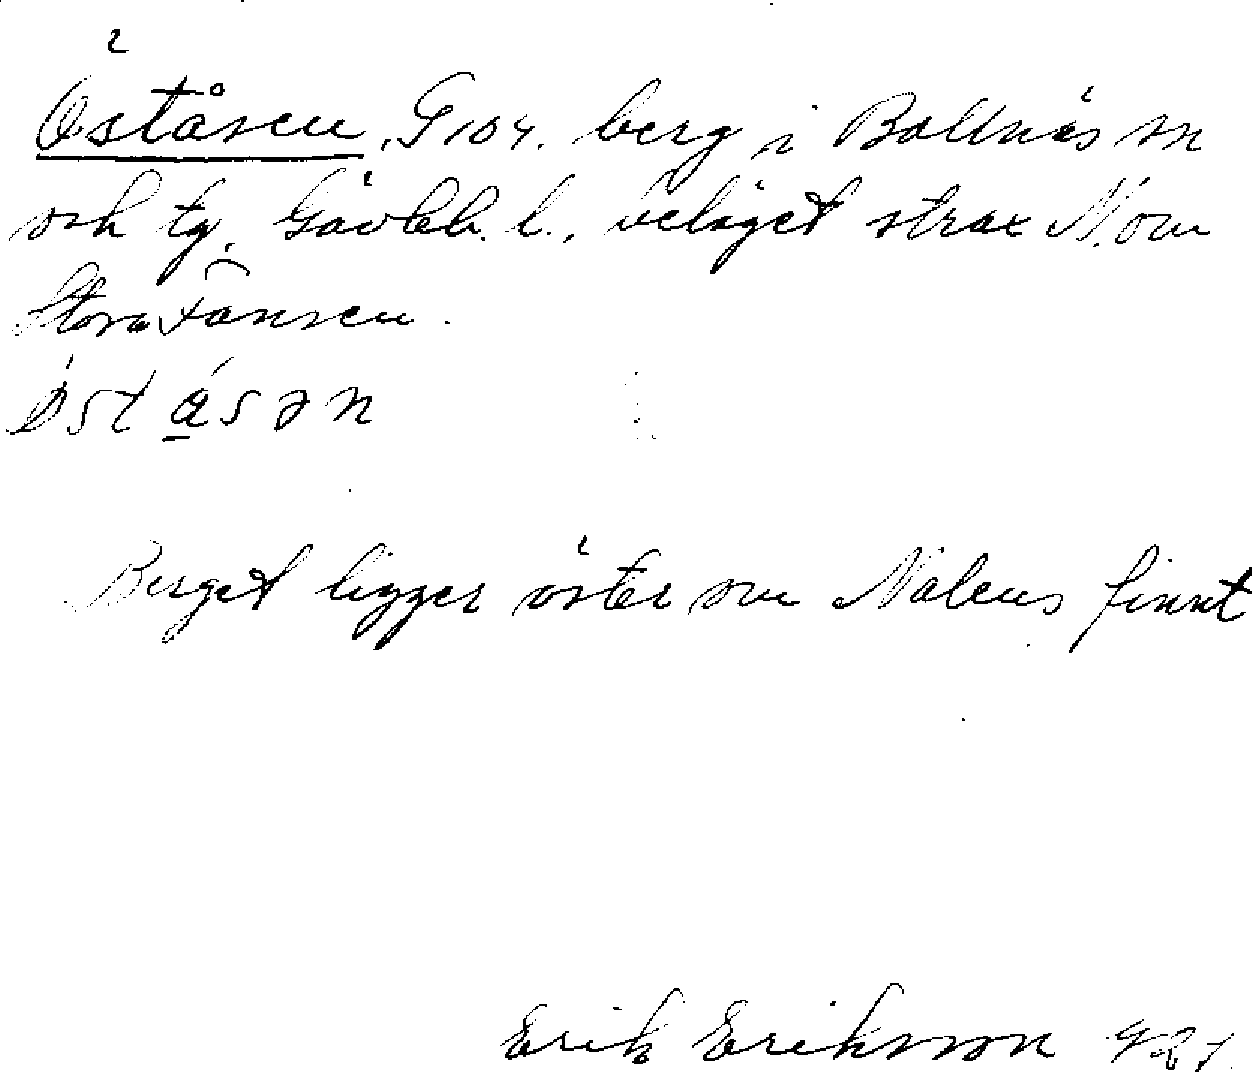 Öståsen, G 104. berg i Bollnäs sn
och tg. Gävleb. l., beläget strax N. om
Stora
öståsən
Berget ligger öster om Nålens finnt
Erik Eriksson